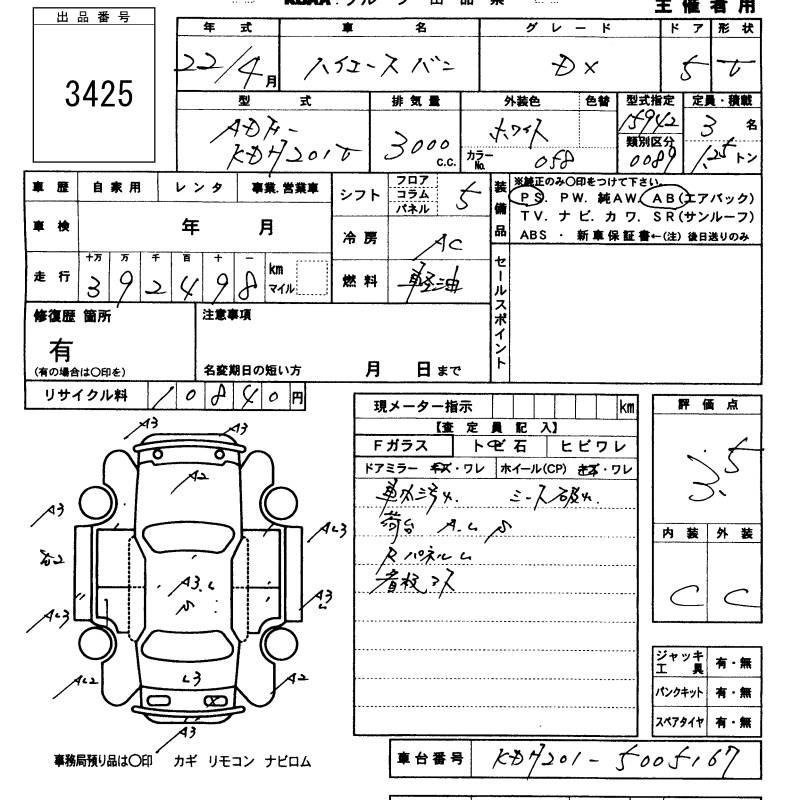 主催者用
出品番号
3425
年式 車名 グレード ドア 形状
22/4月 ハイエースバン DX 5 V
型式 排気量 外装色 色替 型式指定 定員・積載
ADF- 3000 c.c. ホワイト 15942 3名
KDH201V カラーNo. 058 類別区分 0089 1.25トン
車歴 自家用 レンタ 事業.営業車 シフト フロア コラム パネル 5
装備品 ※純正のみ〇印をつけて下さい。
PS. PW. 純AW. AB(エアバック)
TV. ナビ. カワ. SR(サンルーフ)
ABS ・ 新車保証書←(注) 後日送りのみ
車検 年 月 冷房 AC
走行 十万 万 千 百 十 一
392498 km マイル 燃料 軽油
セールスポイント
修復歴 箇所 注意事項
有
(有の場合は〇印を) 名変期日の短い方 月 日まで
リサイクル料 10840円
現メーター指示 km
【査定員記入】
Fガラス トビ石 ヒビワレ
ドアミラー キズ・ワレ ホイール(CP) キズ・ワレ
車内ヨゴレ. シート破れ.
荷台 A.L S
Rパネル L
看板コス
評価点
3.5
内装 外装
C C
A3 A3
A2
A3 AL3
AL3 A3.L S A3 L
AL2 L3 A2
A3
ジャッキ工具 有・無
パンクキット 有・無
スペアタイヤ 有・無
事務局預り品は〇印 カギ リモコン ナビロム
車台番号 KDH201-5005167